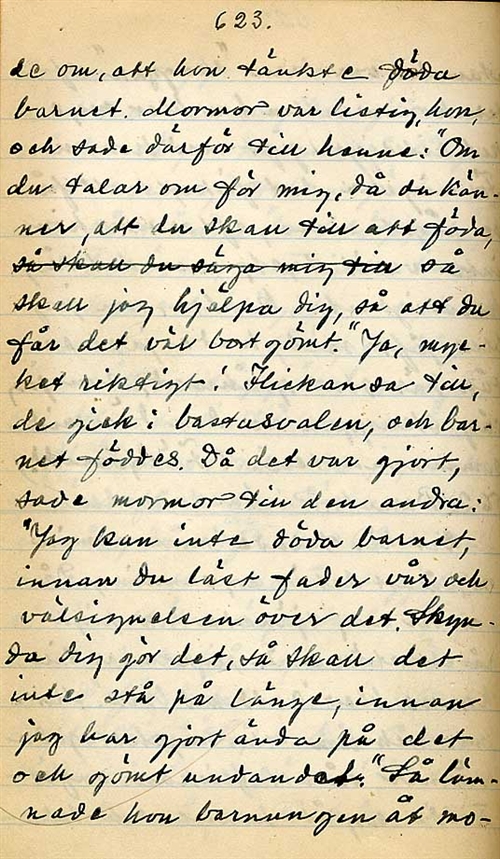 623.
de om, att hon tänkte döda
barnet. Mormor var listig, hon,
och sade därför till henne: "Om
du talar om för mig, då du kän-
ner, att du skall till att föda,
så skall du säga mig till så
skall jag hjälpa dig, så att du
får det väl bortgömt." Ja, myc-
ket riktigt! Flickan sa till,
de gick i bastusvalen, och bar-
net föddes. Då det var gjort,
sade mormor till den andra:
"Jag kan inte döda barnet,
innan du läst fader vår och
välsignelsen över det. Skyn-
da dig gör det, så skall det
inte stå på länge, innan
jag har gjort ända på det
och gömt undandet." Så läm-
nade hon barnungen åt mo-